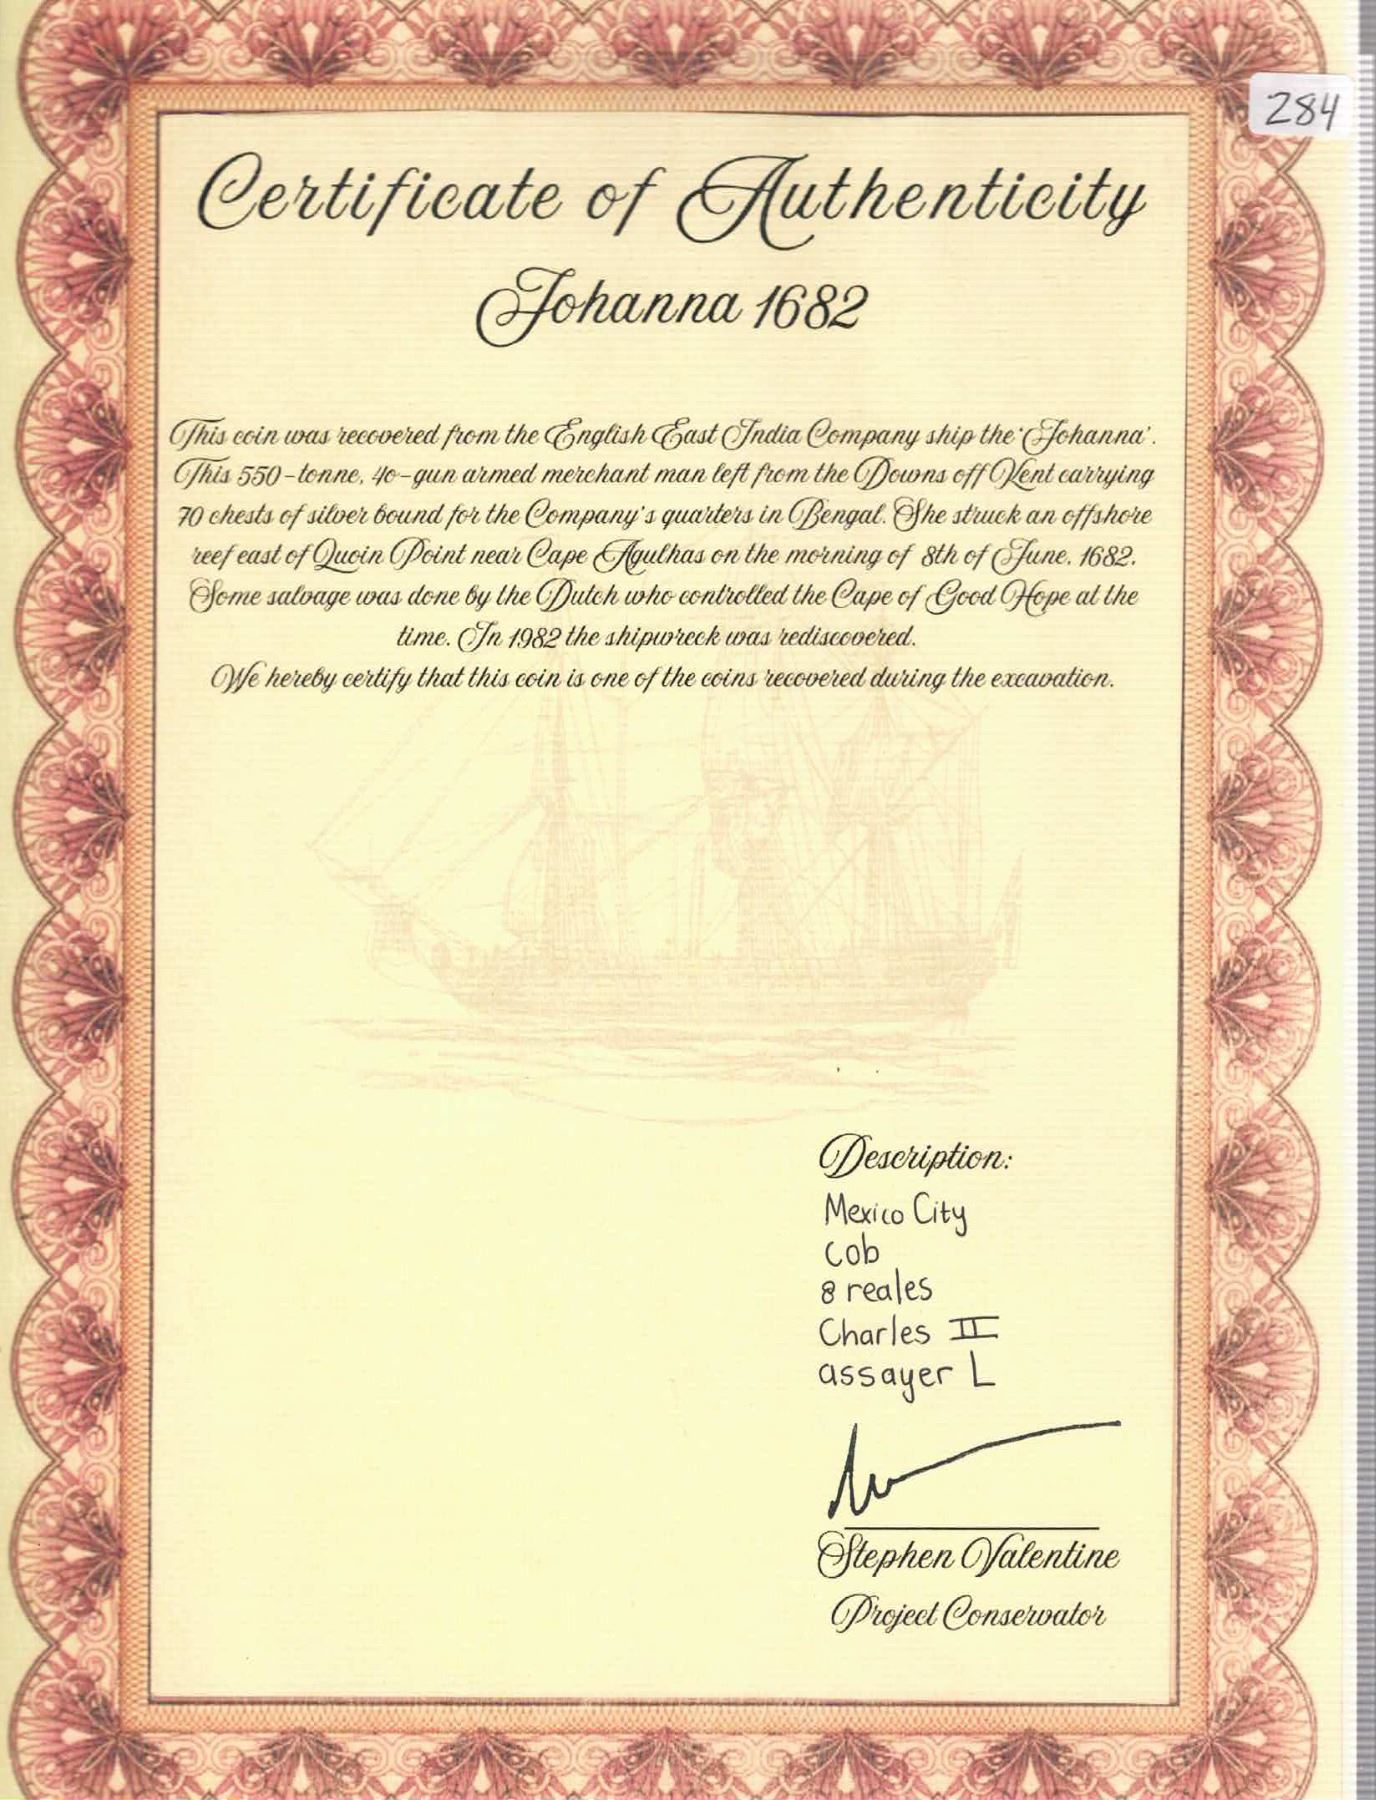 284
Certificate of Authenticity
Johanna 1682
This coin was recovered from the English East India Company ship the 'Johanna'.
This 550-tonne, 40-gun armed merchant man left from the Downs off Kent carrying
70 chests of silver bound for the Company's quarters in Bengal. She struck an offshore
reef east of Quoin Point near Cape Agulhas on the morning of 8th of June, 1682.
Some salvage was done by the Dutch who controlled the Cape of Good Hope at the
time. In 1982 the shipwreck was rediscovered.
We hereby certify that this coin is one of the coins recovered during the excavation.
Description:
Mexico City
cob
8 reales
Charles II
assayer L
Stephen Valentine
Project Conservator